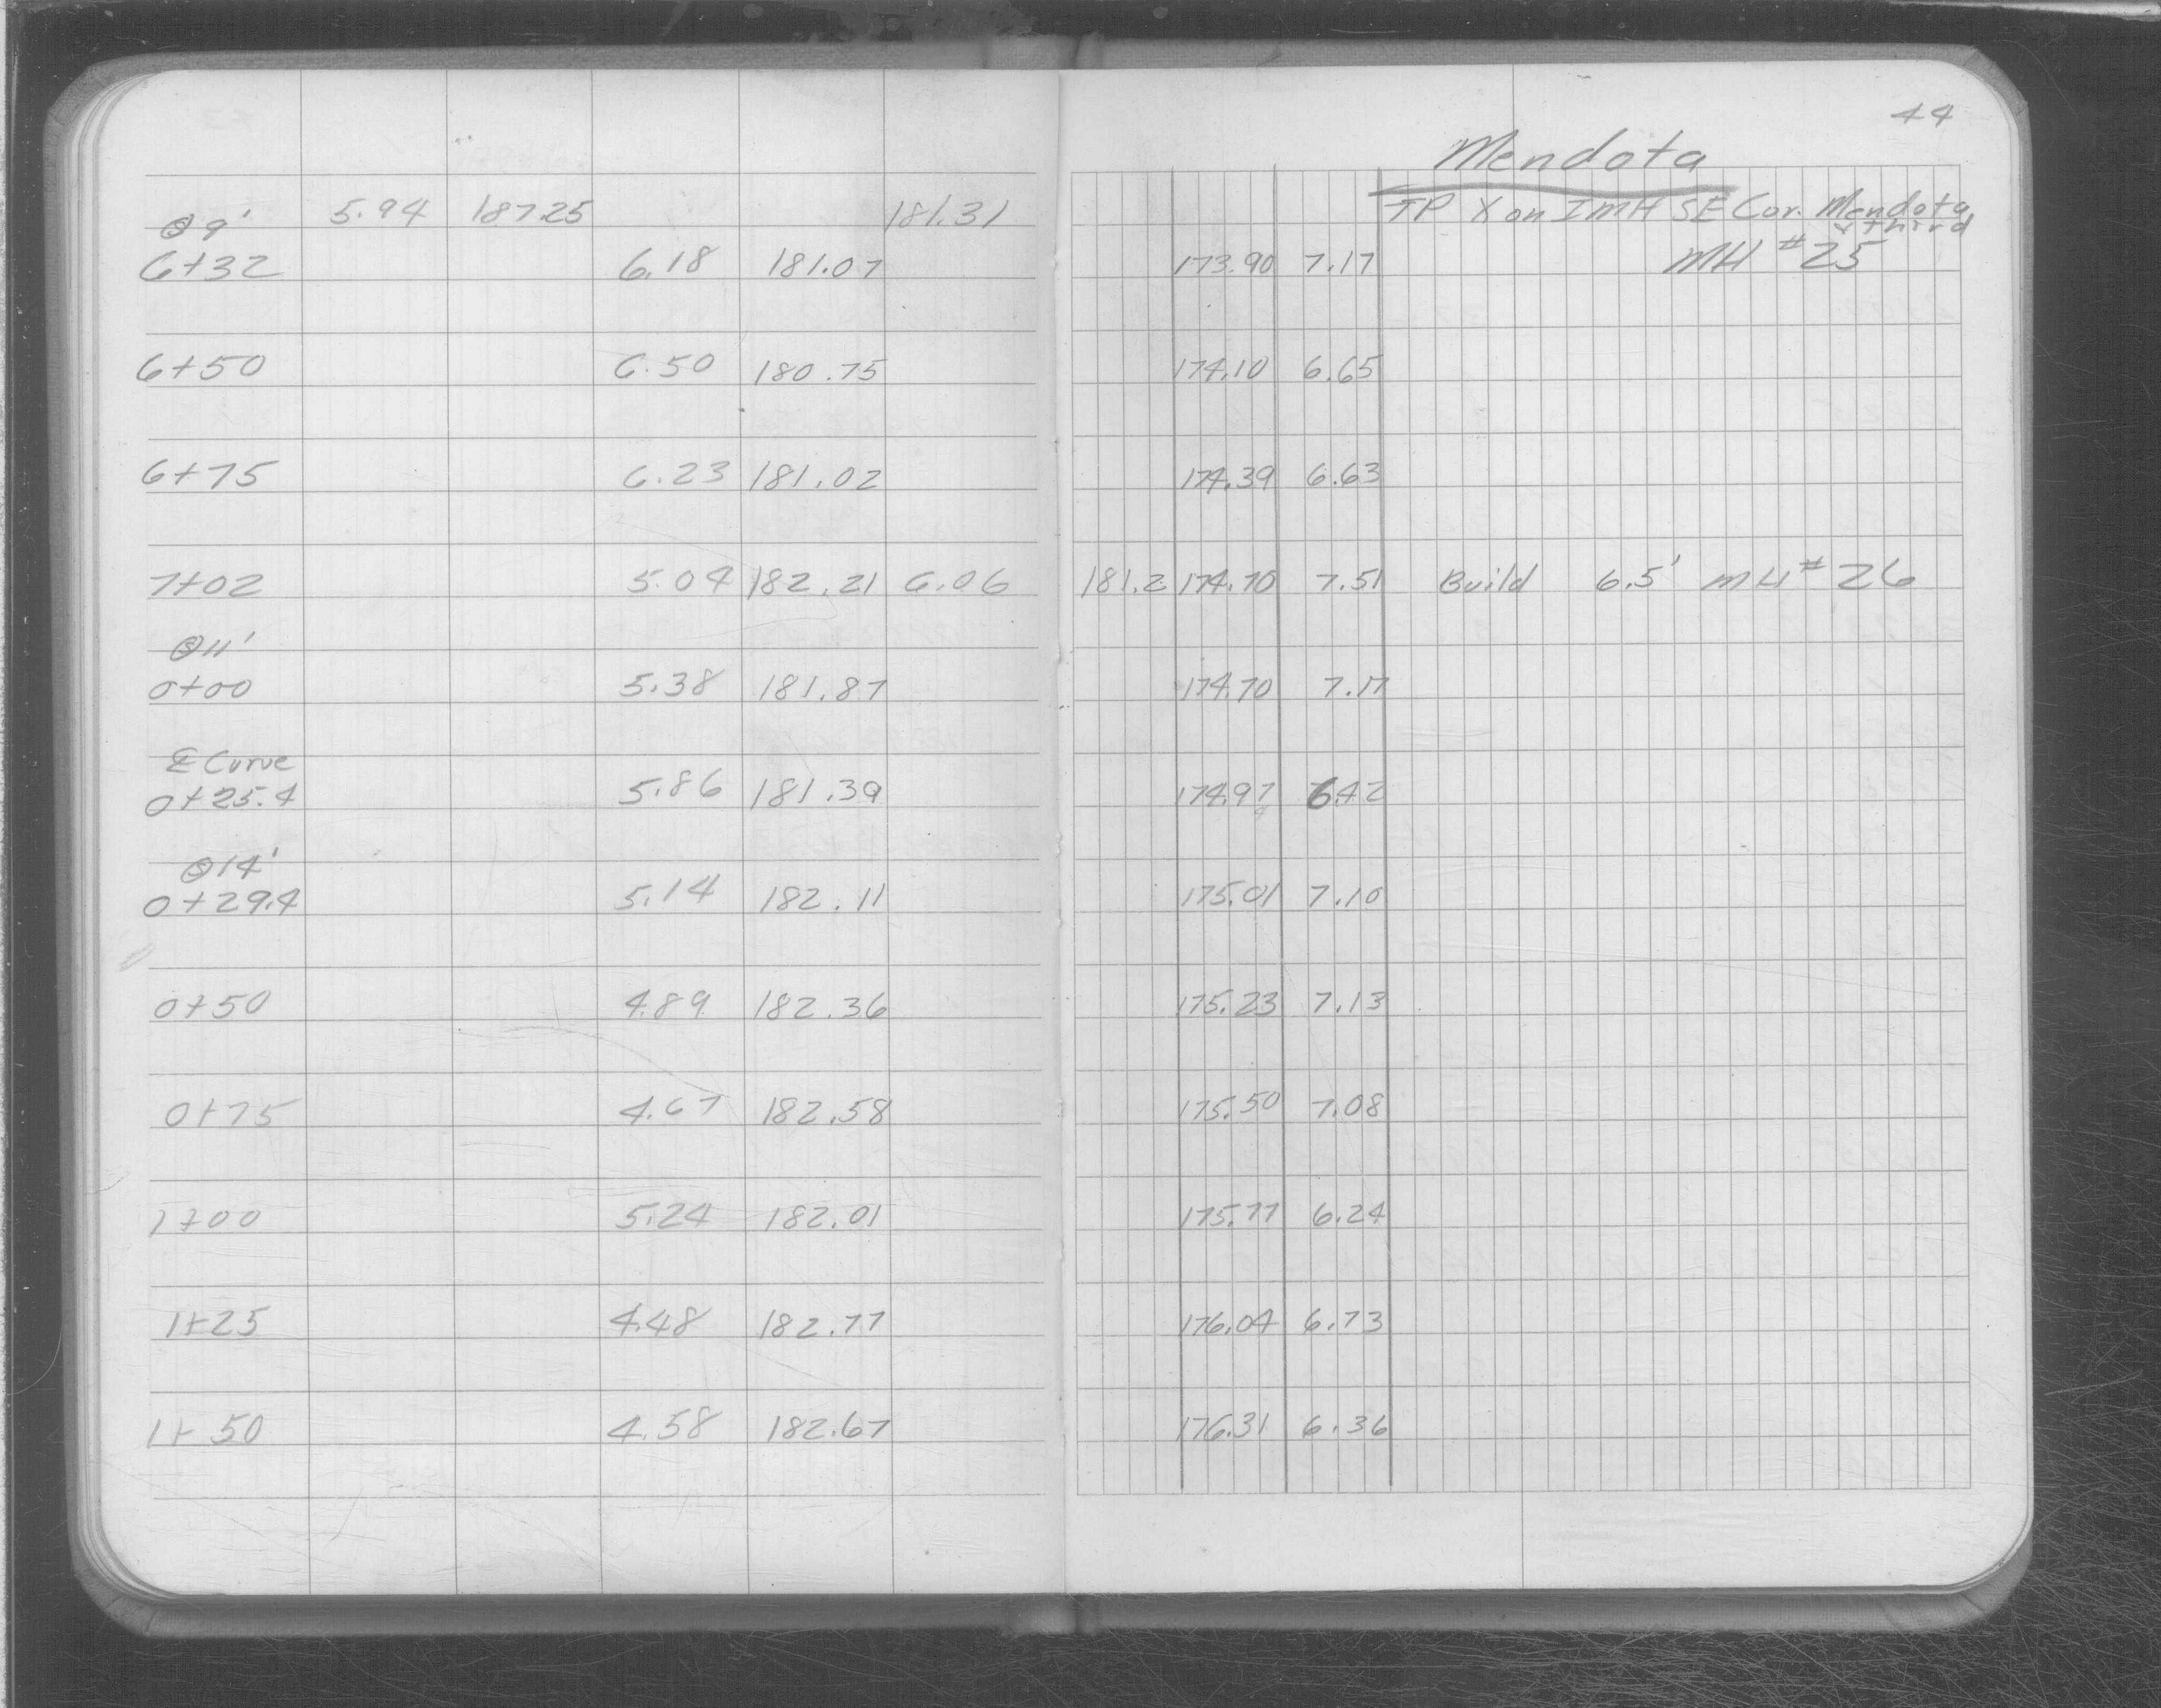 44
Mendota
5.94 187.25 181.31 TP X on IMH SE Cor. Mendota & third
⊙ 9'
6+32 6.18 181.07 173.90 7.17 MH #25
6+50 6.50 180.75 174.10 6.65
6+75 6.23 181.02 174.39 6.63
7+02 5.04 182.21 6.06 181.2 174.70 7.51 Build 6.5' MH #26
⊙ 11'
0+00 5.38 181.87 174.70 7.17
Curve
0+25.4 5.86 181.39 174.97 6.42
⊙ 14'
0+29.4 5.14 182.11 175.01 7.10
0+50 4.89 182.36 175.23 7.13
0+75 4.67 182.58 175.50 7.08
1+00 5.24 182.01 175.77 6.24
1+25 4.48 182.77 176.04 6.73
1+50 4.58 182.67 176.31 6.36